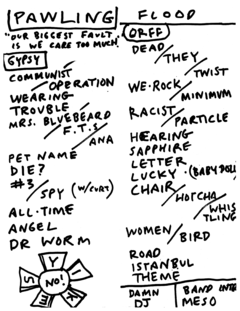 PAWLING
"OUR BIGGEST FAULT
IS WE CARE TOO MUCH."
GYPSY
COMMUNIST
OPERATION
WEARING
TROUBLE
MRS. BLUEBEARD
F.T.S
ANA
PET NAME
DIE?
#3
SPY (W/CURT)
ALL-TIME
ANGEL
DR WORM
YES
NO!
FLOOD
ORFF
DEAD
THEY
TWIST
WE·ROCK
MINIMUM
RACIST
PARTICLE
HEARING
SAPPHIRE
LETTER
LUCKY·(BABY DOLL
CHAIR
HOTCHA
WHIS
TLING
WOMEN
BIRD
ROAD
ISTANBUL
THEME
DAMN
DJ
BAND INT
MESO